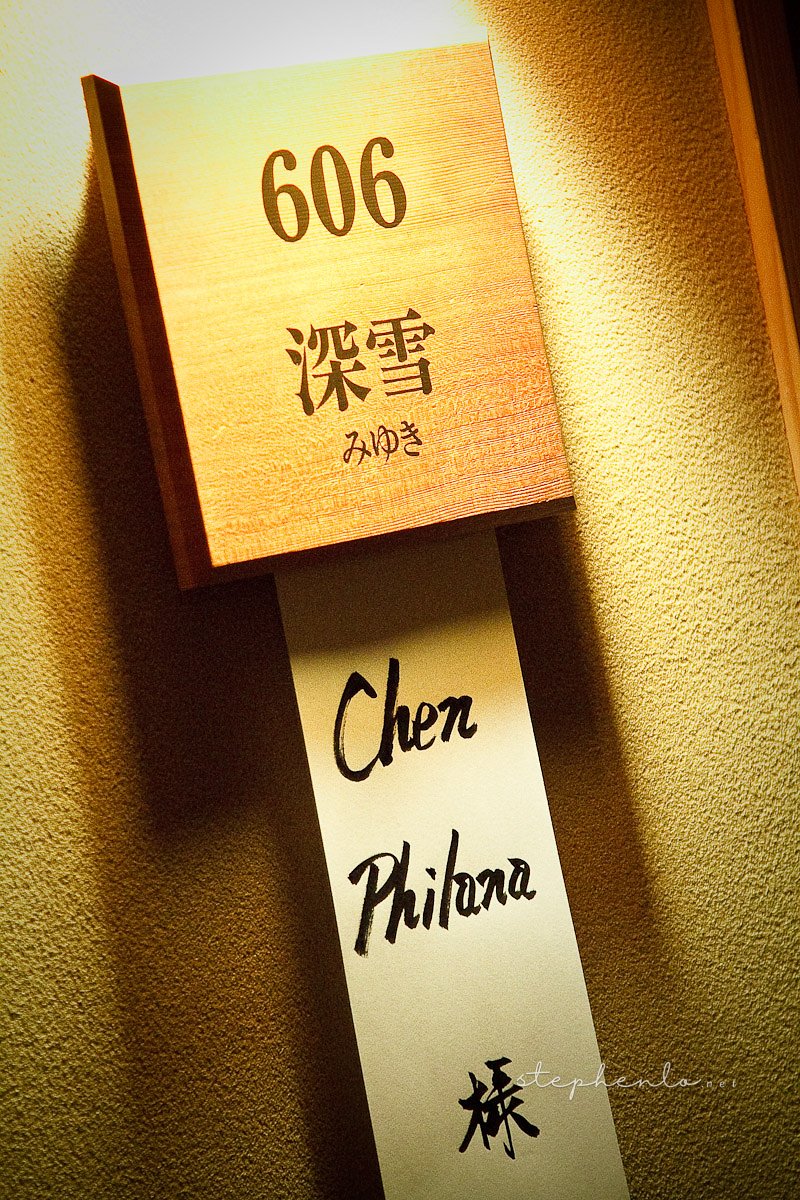 606
深雪
みゆき
Chen
Philana
様
stephenlo.net